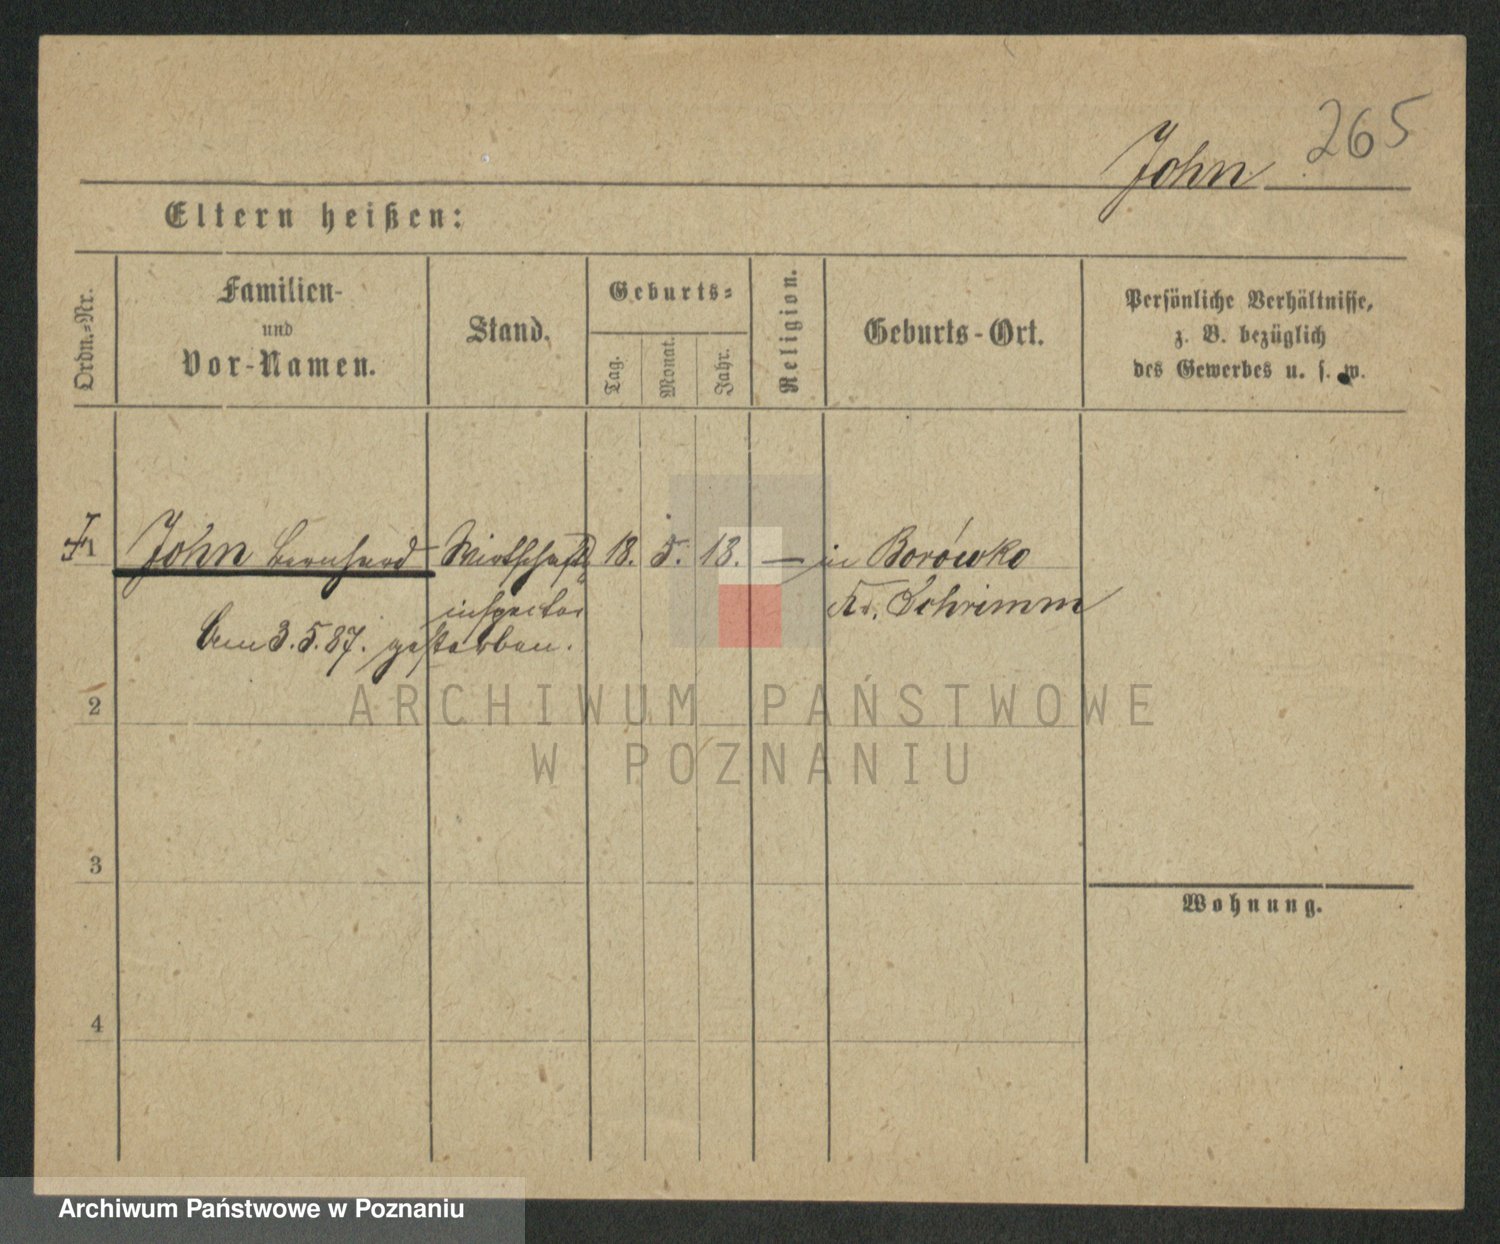 265
John
Eltern heißen:
Ordn.=Nr.
Familien-
und
Vor-Namen.
Stand.
Geburts=
Tag.
Monat.
Jahr.
Religion.
Geburts-Ort.
Persönliche Verhältnisse,
z. B. bezüglich
des Gewerbes u. s. w.
1 John Bernhard Wirthschafts 18. 5. 13. — in Borówko
inspector Kr. Schrimm
Am 3.5.87. gestorben.
2
ARCHIWUM PAŃSTWOWE
W POZNANIU
3
Wohnung.
4
Archiwum Państwowe w Poznaniu